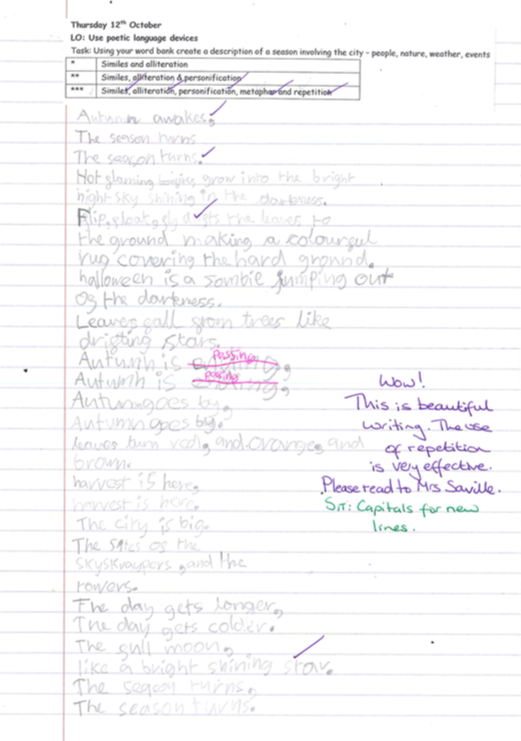 Thursday 12th October
LO: Use poetic language devices
Task: Using your word bank create a description of a season involving the city – people, nature, weather, events
* Similes and alliteration
** Similes, alliteration & personification
*** Similes, alliteration, personification, metaphor and repetition
Autumn awakes,
The season turns
The season turns.
Hot glaming grow into the bright
night sky shining in the darkness.
Flip, gloat, the leaves to
the ground making a colourful
rug covering the hard ground.
halloween is a sombie jumping out
og the darkness.
Leaves gall grom trees like
drigting stars.
Autumn is passing,
Autumn is passing,
Autumn goes by,
Autumn goes by.
leaves turn red, and orange, and
brown.
harvest is here,
harvest is here.
The city is big.
The og the
skyskraypers, and the
towers.
The day gets longer,
The day gets colder.
The gull moon,
like a bright shining star.
The season turns,
The season turns.
Wow!
This is beautiful
writing. The use
of repetition
is very effective.
Please read to Mrs Saville.
SIT: Capitals for new
lines.